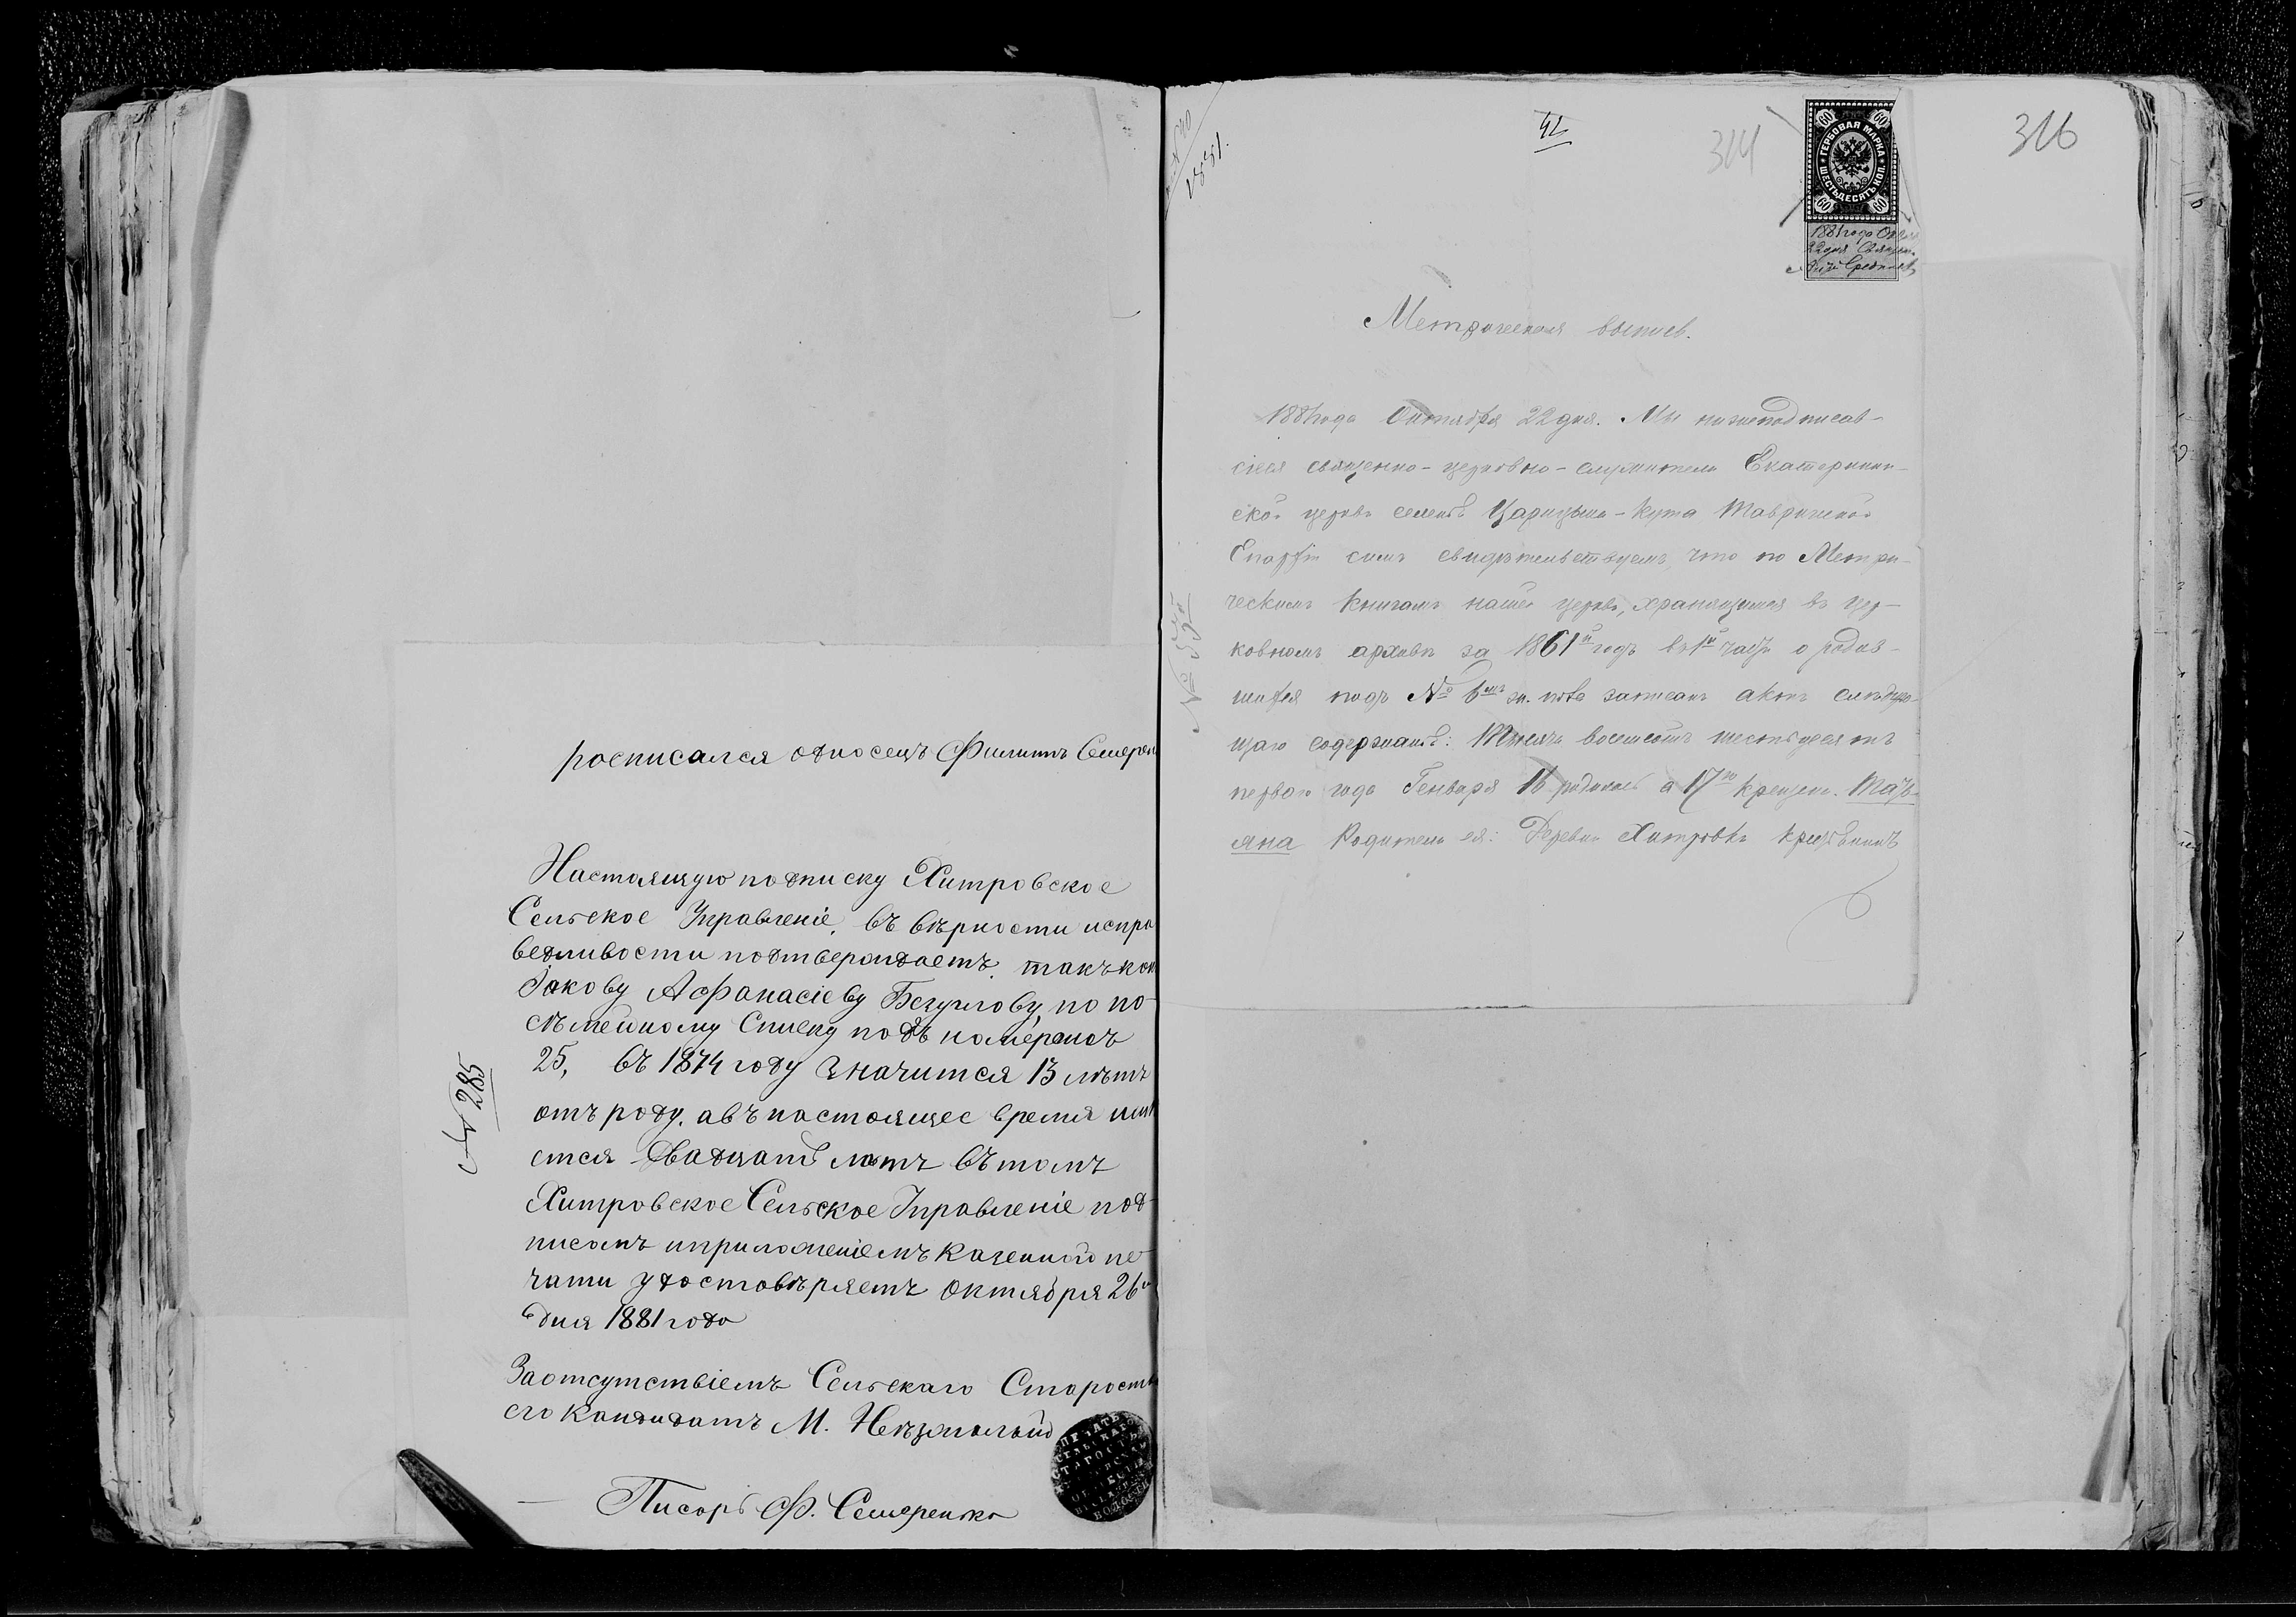 росписался односецъ Филипъ Семерен
Настоящую подписку Хитровское
Сельское Управленіе, въ вѣрности испра
ведливости подтверждаетъ. такъ как
Іакову Афанасіеву Безуглову, по по-
сѣмейному Списку подъ номеромъ
25, въ 1874 году значится 13 лѣтъ
отъ роду. а въ настоящее время имѣ
ется двадцать лѣтъ въ томъ
Хитровское Сельское Управленіе под-
писомъ и приложеніемъ казенной пе-
чати удостовѣряетъ Октября 26
дня 1881 года
За отсутствіемъ Сельскаго Старосты
его Кандидатъ М.
Писарь Ф. Семеренко
№ 285
ПЕЧАТЬ
СЕЛЬСКАГО
СТАРОСТЫ
1881.
42
314
316
60 60
ГЕРБОВАЯ МАРКА
ШЕСТЬДЕСЯТЪ КОП.
60 60
1881 года Ок
22 дня Священ.
Метрическая выпись.
1881 года Октября 22 дня. Мы нижеподписав-
сіеся священно-церковно-служители Екатеринин-
ской церкви селенія Царицына-Кута Таврической
Епархіи симъ свидѣтельствуемъ, что по Метри-
ческимъ книгамъ нашей церкви, хранящимся въ цер-
ковномъ архивѣ за 1861й годъ въ 1й части о родив-
шихся подъ № 6мъ записанъ актъ слѣдую-
щаго содержанія: Тысяча восемсотъ шестьдесятъ
перваго года Генваря 16 родилась а 17го крещена. Тать-
яна Родители ея: Деревни Хитровки